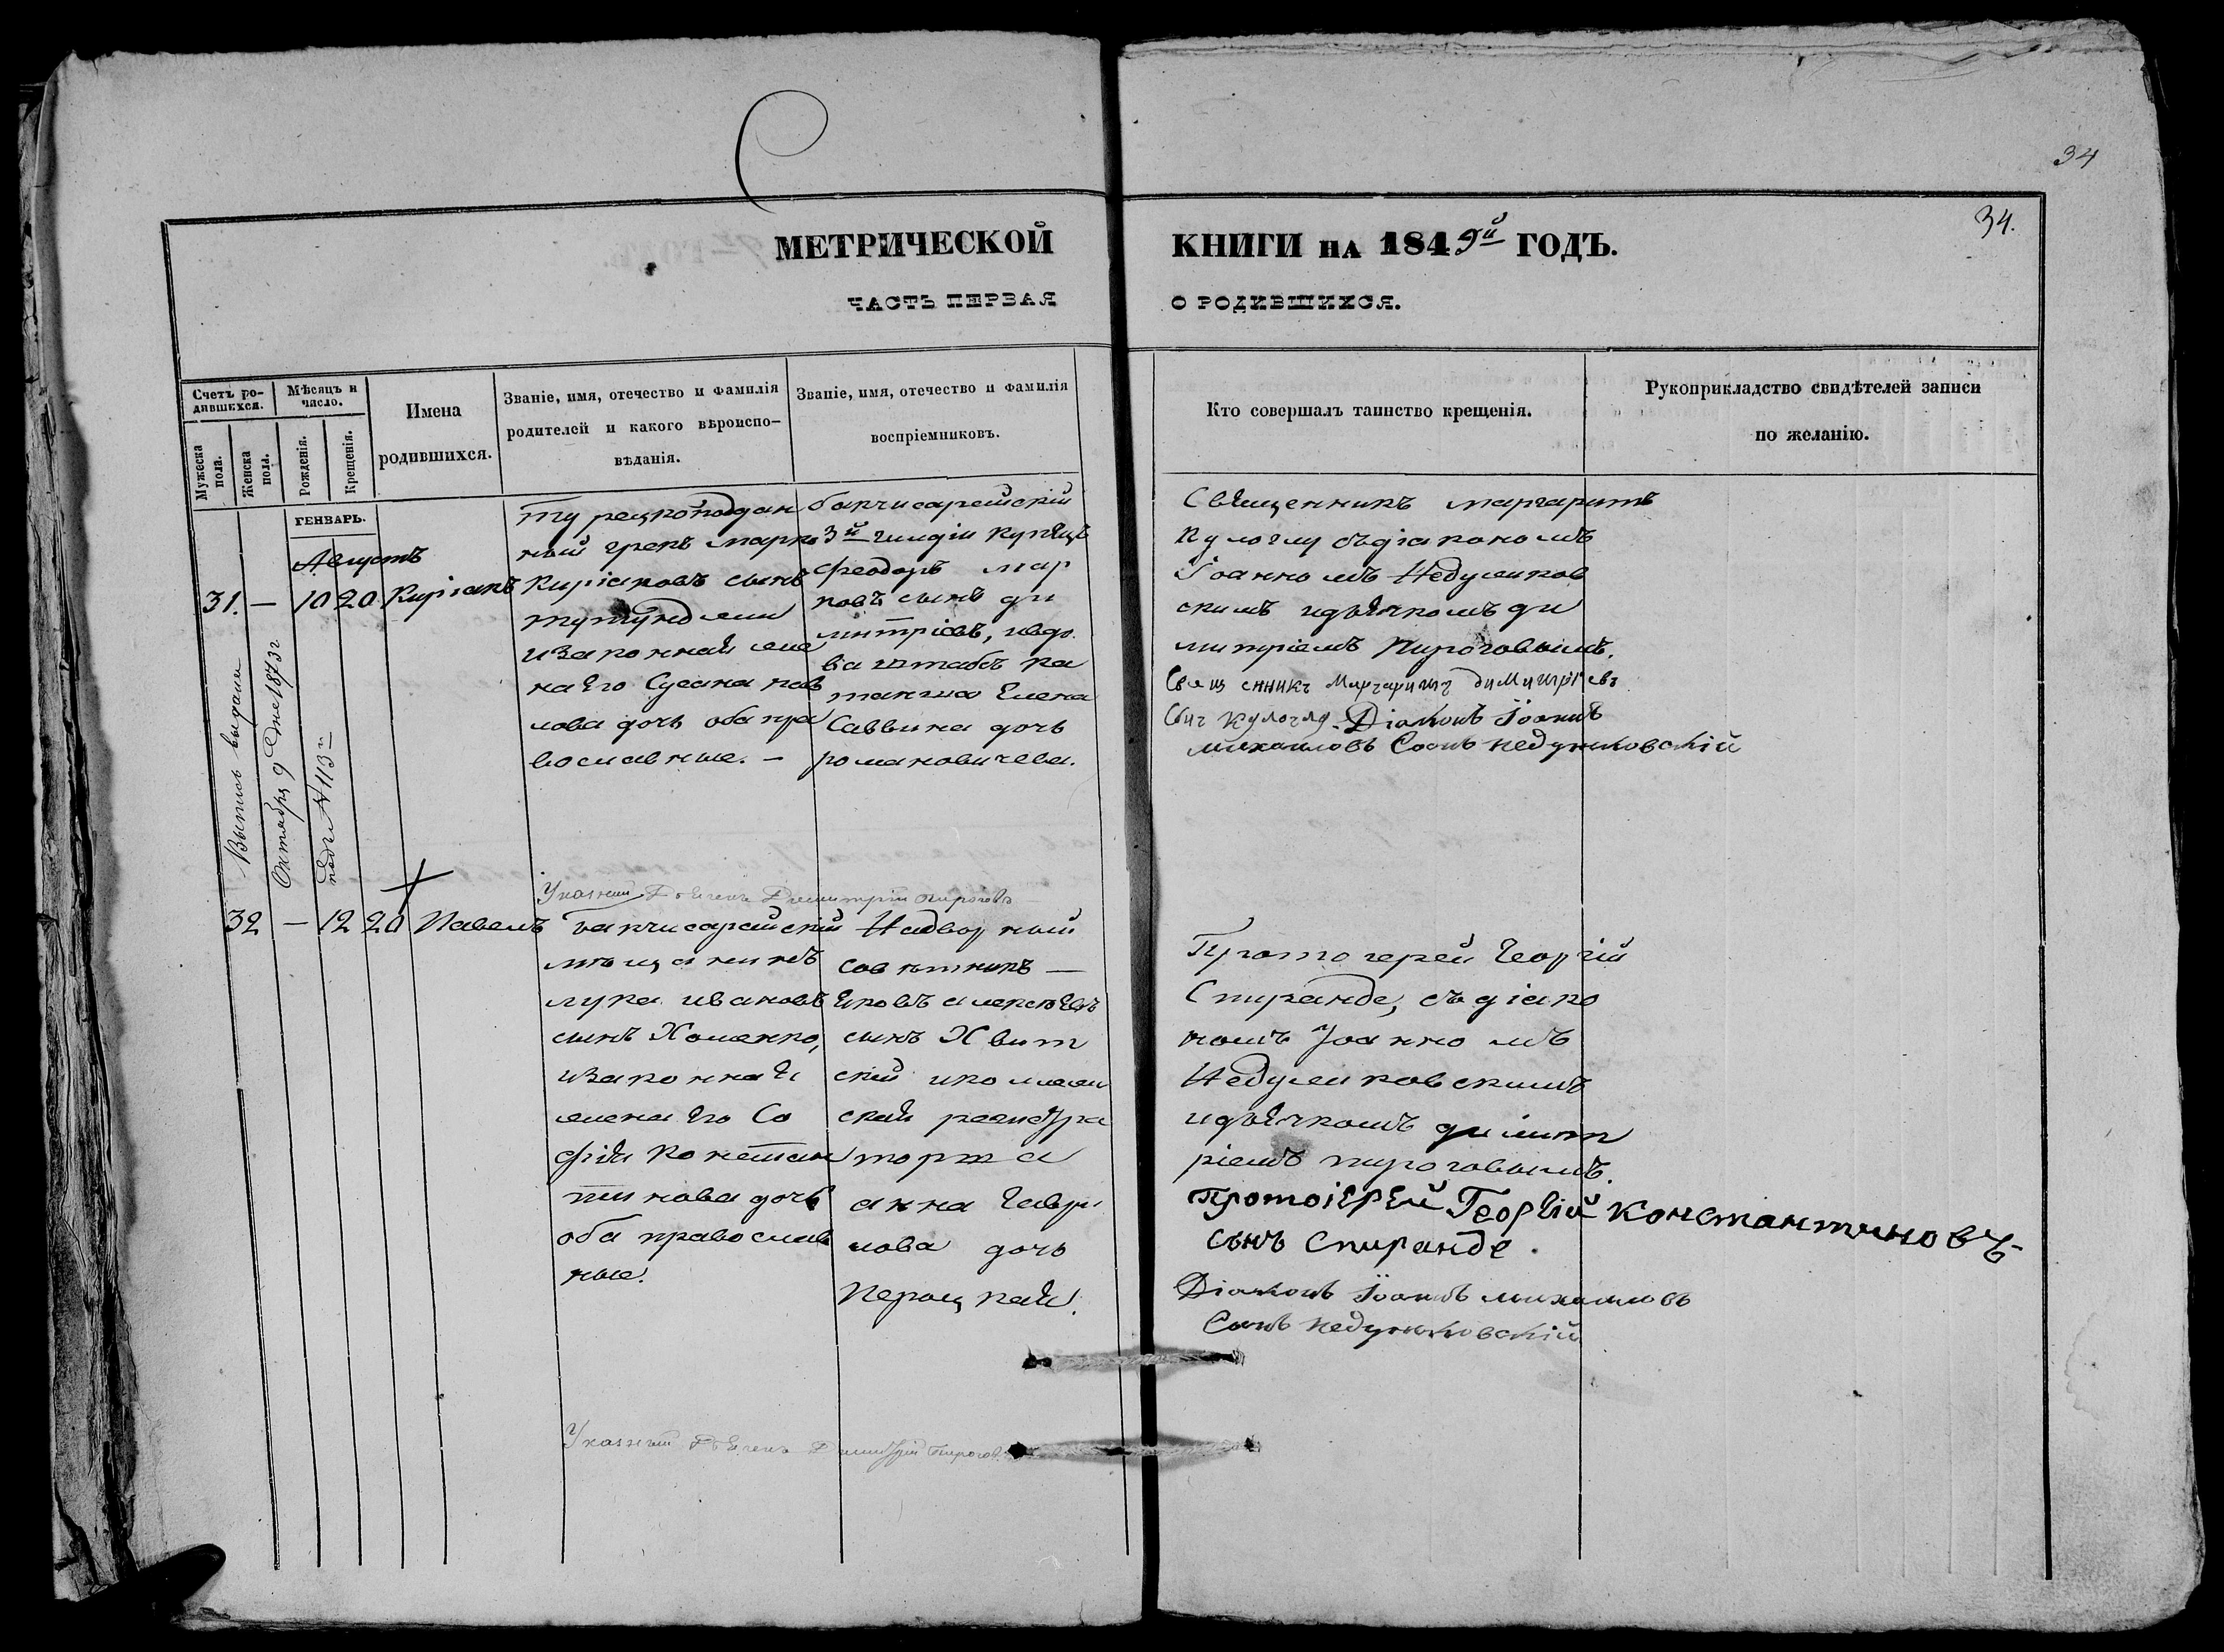 34
34.
МЕТРИЧЕСКОЙ КНИГИ НА 1849й ГОДЪ.
ЧАСТЬ ПЕРВАЯ О РОДИВШИХСЯ.
Счетъ ро-
дившихся.
Мужеска
пола.
Женска
пола.
Мѣсяцъ и
число.
Рожденія.
Крещенія.
Имена
родившихся.
Званіе, имя, отечество и фамилія
родителей и какого вѣроиспо-
вѣданія.
Званіе, имя, отечество и фамилія
воспріемниковъ.
Кто совершалъ таинство крещенія.
Рукоприкладство свидѣтелей записи
по желанію.
ГЕНВАРЬ.
Августъ
31. — 10 20 Киріакъ
Турецкоподдан
ный грекъ Марко
Киріаковъ сынъ
изаконная жена
на Его Сусана пав
лова дочь оба пра
вославные. —
бакчисарайскій
3й гилдіи купецъ
Феодоръ мар
ковъ сынъ ди
митріевъ, ивдо
ва штабсъ ка
питанша Елена
Саввина дочь
романовичева.
Священникъ маргаритъ
Кулоглу съдіакономъ
Іоанномъ Недуликов
скимъ идьячкомъ ди
митріемъ Пироговымъ.
Священникъ Маргаритъ димитріевъ
Сынъ Кулоглу. Діаконъ Іоаннъ
михаиловъ Сынъ недуликовскій
Выпись выдана
Октября 9 дня 1873 г
№ 113
Указный Дьячекъ Димитрій Пироговъ
32 — 12 20 Павелъ
бакчисарайскій
мѣщанинъ
лука ивановъ
сынъ Хоменко,
изаконная
жена Его Со
фія Констан
тинова дочь
оба православ
ные.
Надворный
совѣтникъ —
Яковъ алексѣевъ
сынъ Хвит
скій иколлеж
ская регистра
торша
анна Гаври
лова дочь
Перецкая.
Протоіерей Георгій
Спиранде, съдіако
номъ Іоанномъ
Недуликовскимъ
идьячкомъ димит
ріемъ пироговымъ.
протоіерей Георгій Константиновъ
сынъ Спиранде.
Діаконъ Іоаннъ михаиловъ
Сынъ недуликовскій
Указный Дьячекъ Димитрій Пироговъ